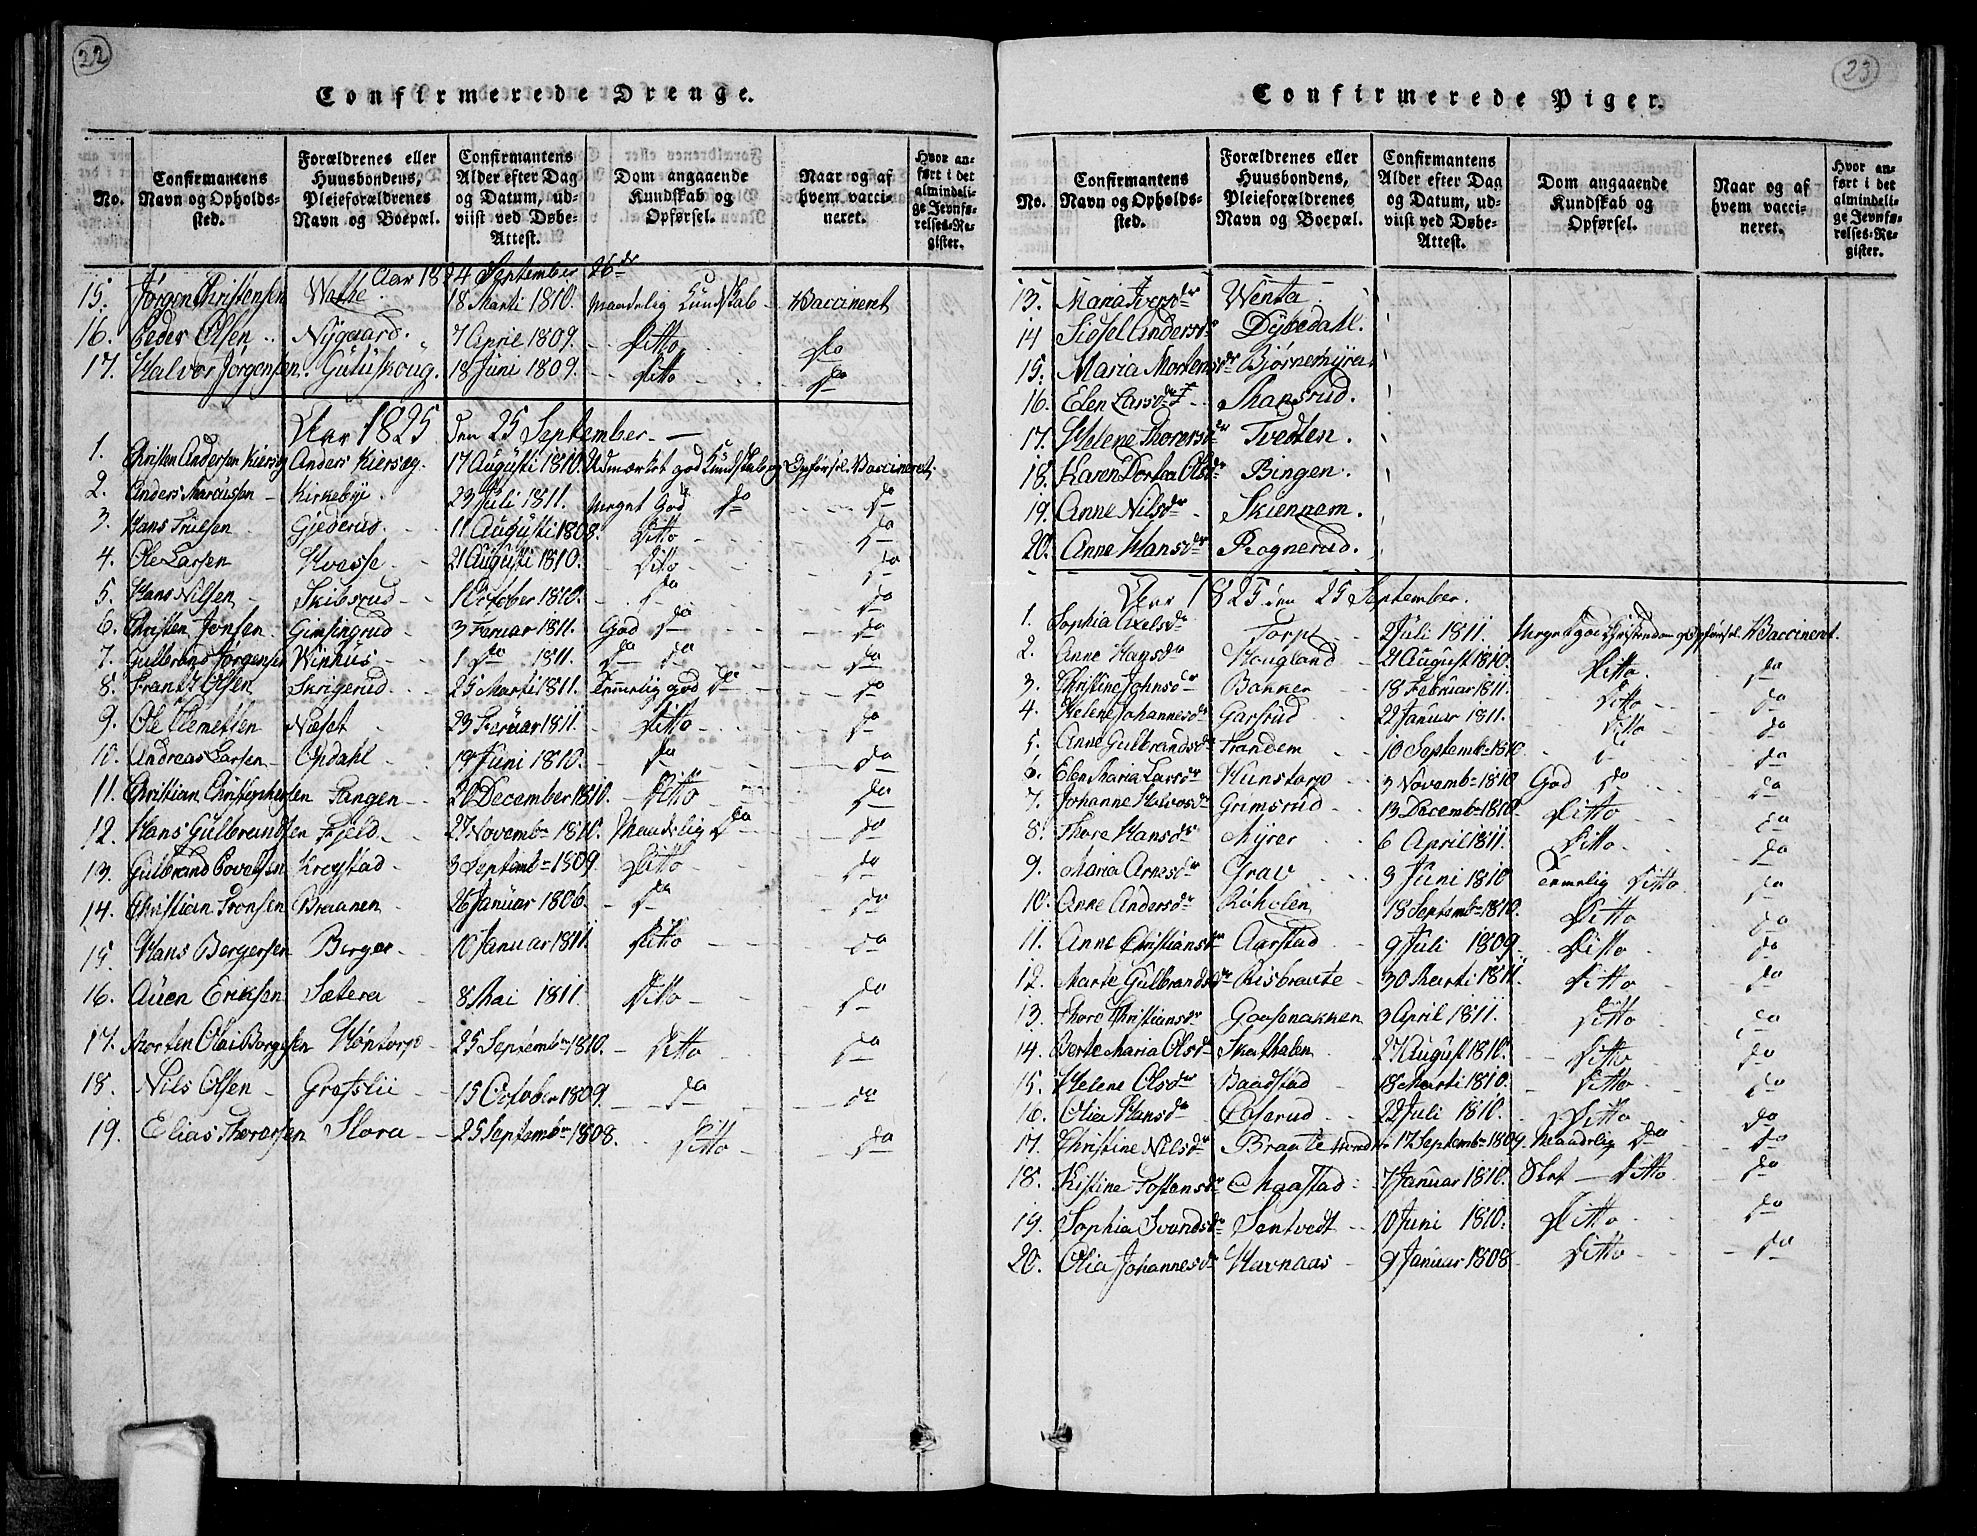 22
Confirmerede Drenge.
No.
Confirmantens Navn og Opholdssted.
Forældrenes eller Huusbondens, Pleieforældrenes Navn og Boepæl.
Confirmantens Alder efter Dag og Datum, udviist ved Døbe-Attest.
Dom angaaende Kundskab og Opførsel.
Naar og af hvem vaccineret.
Hvor anført i det almindelige Jevnførelses-Register.
Aar 1824 September 26de
15. Jørgen Christensen 18 Marti 1810. Maadelig Kundskab - Vaccineret
16. Peder Olsen Nygaard. 7 April 1809. Ditto do
17. Halvor Jørgensen Guluskoug. 18 Juni 1809. Ditto do
Aar 1825 den 25 September.
1. Christen Andersen Kiersøg Anders Kiersøg. 17 Augusti 1810. Udmærket god Kundskab og Opførsel. Vaccineret
2. Anders Marcussen Kirkebye. 23 Juli 1811. Meget God do do
3. Hans Truelsen Gjederud 11 Augusti 1808. Ditto do
4. Ole Larsen 21 Augusti 1810. Ditto do
5. Hans Nilsen Skibsrud 1 October 1810. do do
6. Christen Jonsen. Gimsingrud 3 Feruar 1811. God do do
7. Gulbrand Jørgensen Winhus 1 do 1811. do do do
8. Frantz Olsen Skrigerud 25 Marti 1811. Temmelig god do do
9. Ole Clemetsen Næset 23 Feruar 1811. Ditto do
10. Andreas Larsen Opdahl 19 Juni 1810. do do
11. Christian Christophersen Tangen 20 December 1810. Ditto do
12. Hans Gulbrandsen Fjeld 27 Novembr 1810. Maadelig do do
13. Gulbrand Povelsen Krogstad 3 Septembr 1809. Ditto do
14. Christian Tronsen Braanen 26 Januar 1806. do do
15. Hans Bergersen Berger 10 Januar 1811. Ditto do
16. Auen Eriksen Sætera 8 Mai 1811. Ditto do
17. Morten Olai Borgesen Høntorp 25 Septembr 1810. Ditto do
18. Nils Olsen Grefslii 15 October 1809. do do
19. Elias Thorersen Flora 25 Septembr 1808. Ditto do
23
Confirmerede Piger.
No.
Confirmantens Navn og Opholdssted.
Forældrenes eller Huusbondens, Pleieforældrenes Navn og Boepæl.
Confirmantens Alder efter Dag og Datum, udviist ved Døbe-Attest.
Dom angaaende Kundskab og Opførsel.
Naar og af hvem vaccineret.
Hvor anført i det almindelige Jevnførelses-Register.
13. Maria Iversdr Wenta.
14 Sidsel Andersdr Dybedahl.
15. Maria Mortensdr Bjørnemyra
16. Elen Larsdr
17. Helene Thorersdr Tvedten.
18. Karen Dortea Olsdr Bingen.
19. Anne Nilsdr Skiennem.
20. Anne Hansdr Rognerud.
Aar 1825 den 25 September.
1. Sophia Axelsdr Torp 2 Juli 1811. Meget god Christendom og Opførsel. Vaccineret
2. Anne Hansdr Hougland 21 August 1810. Ditto do
3. Christine Johnsdr Bakker 18 Februar 1811. Ditto do
4. Helene Johannesdr Garsrud 22 Januar 1811. Ditto do
5. Anne Gulbrandsdr Frandem 10 Septembr 1810 do
6. Elen Maria Larsdr Hunstorp 3 Novembr 1810 God do do
7. Johanne Halvosdr Grimsrud 13 Decembr 1810. Ditto do
8. Thore Hansdr Myrer 6 April 1811. Ditto do
9. Maria Arnesdr Grav 3 Juni 1810 Temmelig Ditto do
10. Anne Andersdr Røholen 18 Septembr 1810. Ditto do
11. Anne Christiansdr Aarstad 9 Juli 1809. Ditto do
12. Marte Gulbrandsdr Risbraate 30 Marti 1811. Ditto do
13. Thore Christiansdr Gaasenakken 3 April 1811. Ditto do
14. Berte Maria Olsdr Skathalen 27 August 1810. Ditto do
15. Helene Olsdr Baadstad 18 Marti 1810. Ditto do
16. Olia Hansdr 22 Juli 1810. Ditto do
17. Christine Nilsdr 17 Septembr 1809. Maadelig do do
18. Kistine Tostensdr Maastad 7 Januar 1810. Slet Ditto do
19. Sophia Svendsdr Sentvedt 10 Juni 1810. Ditto do
20. Olia Johannesdr Havnaas 9 Januar 1808 Ditto do